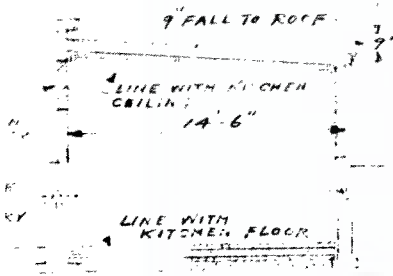 9" FALL TO ROOF
9"
LINE WITH KITCHEN
CEILING
14'-6"
LINE WITH
KITCHEN FLOOR